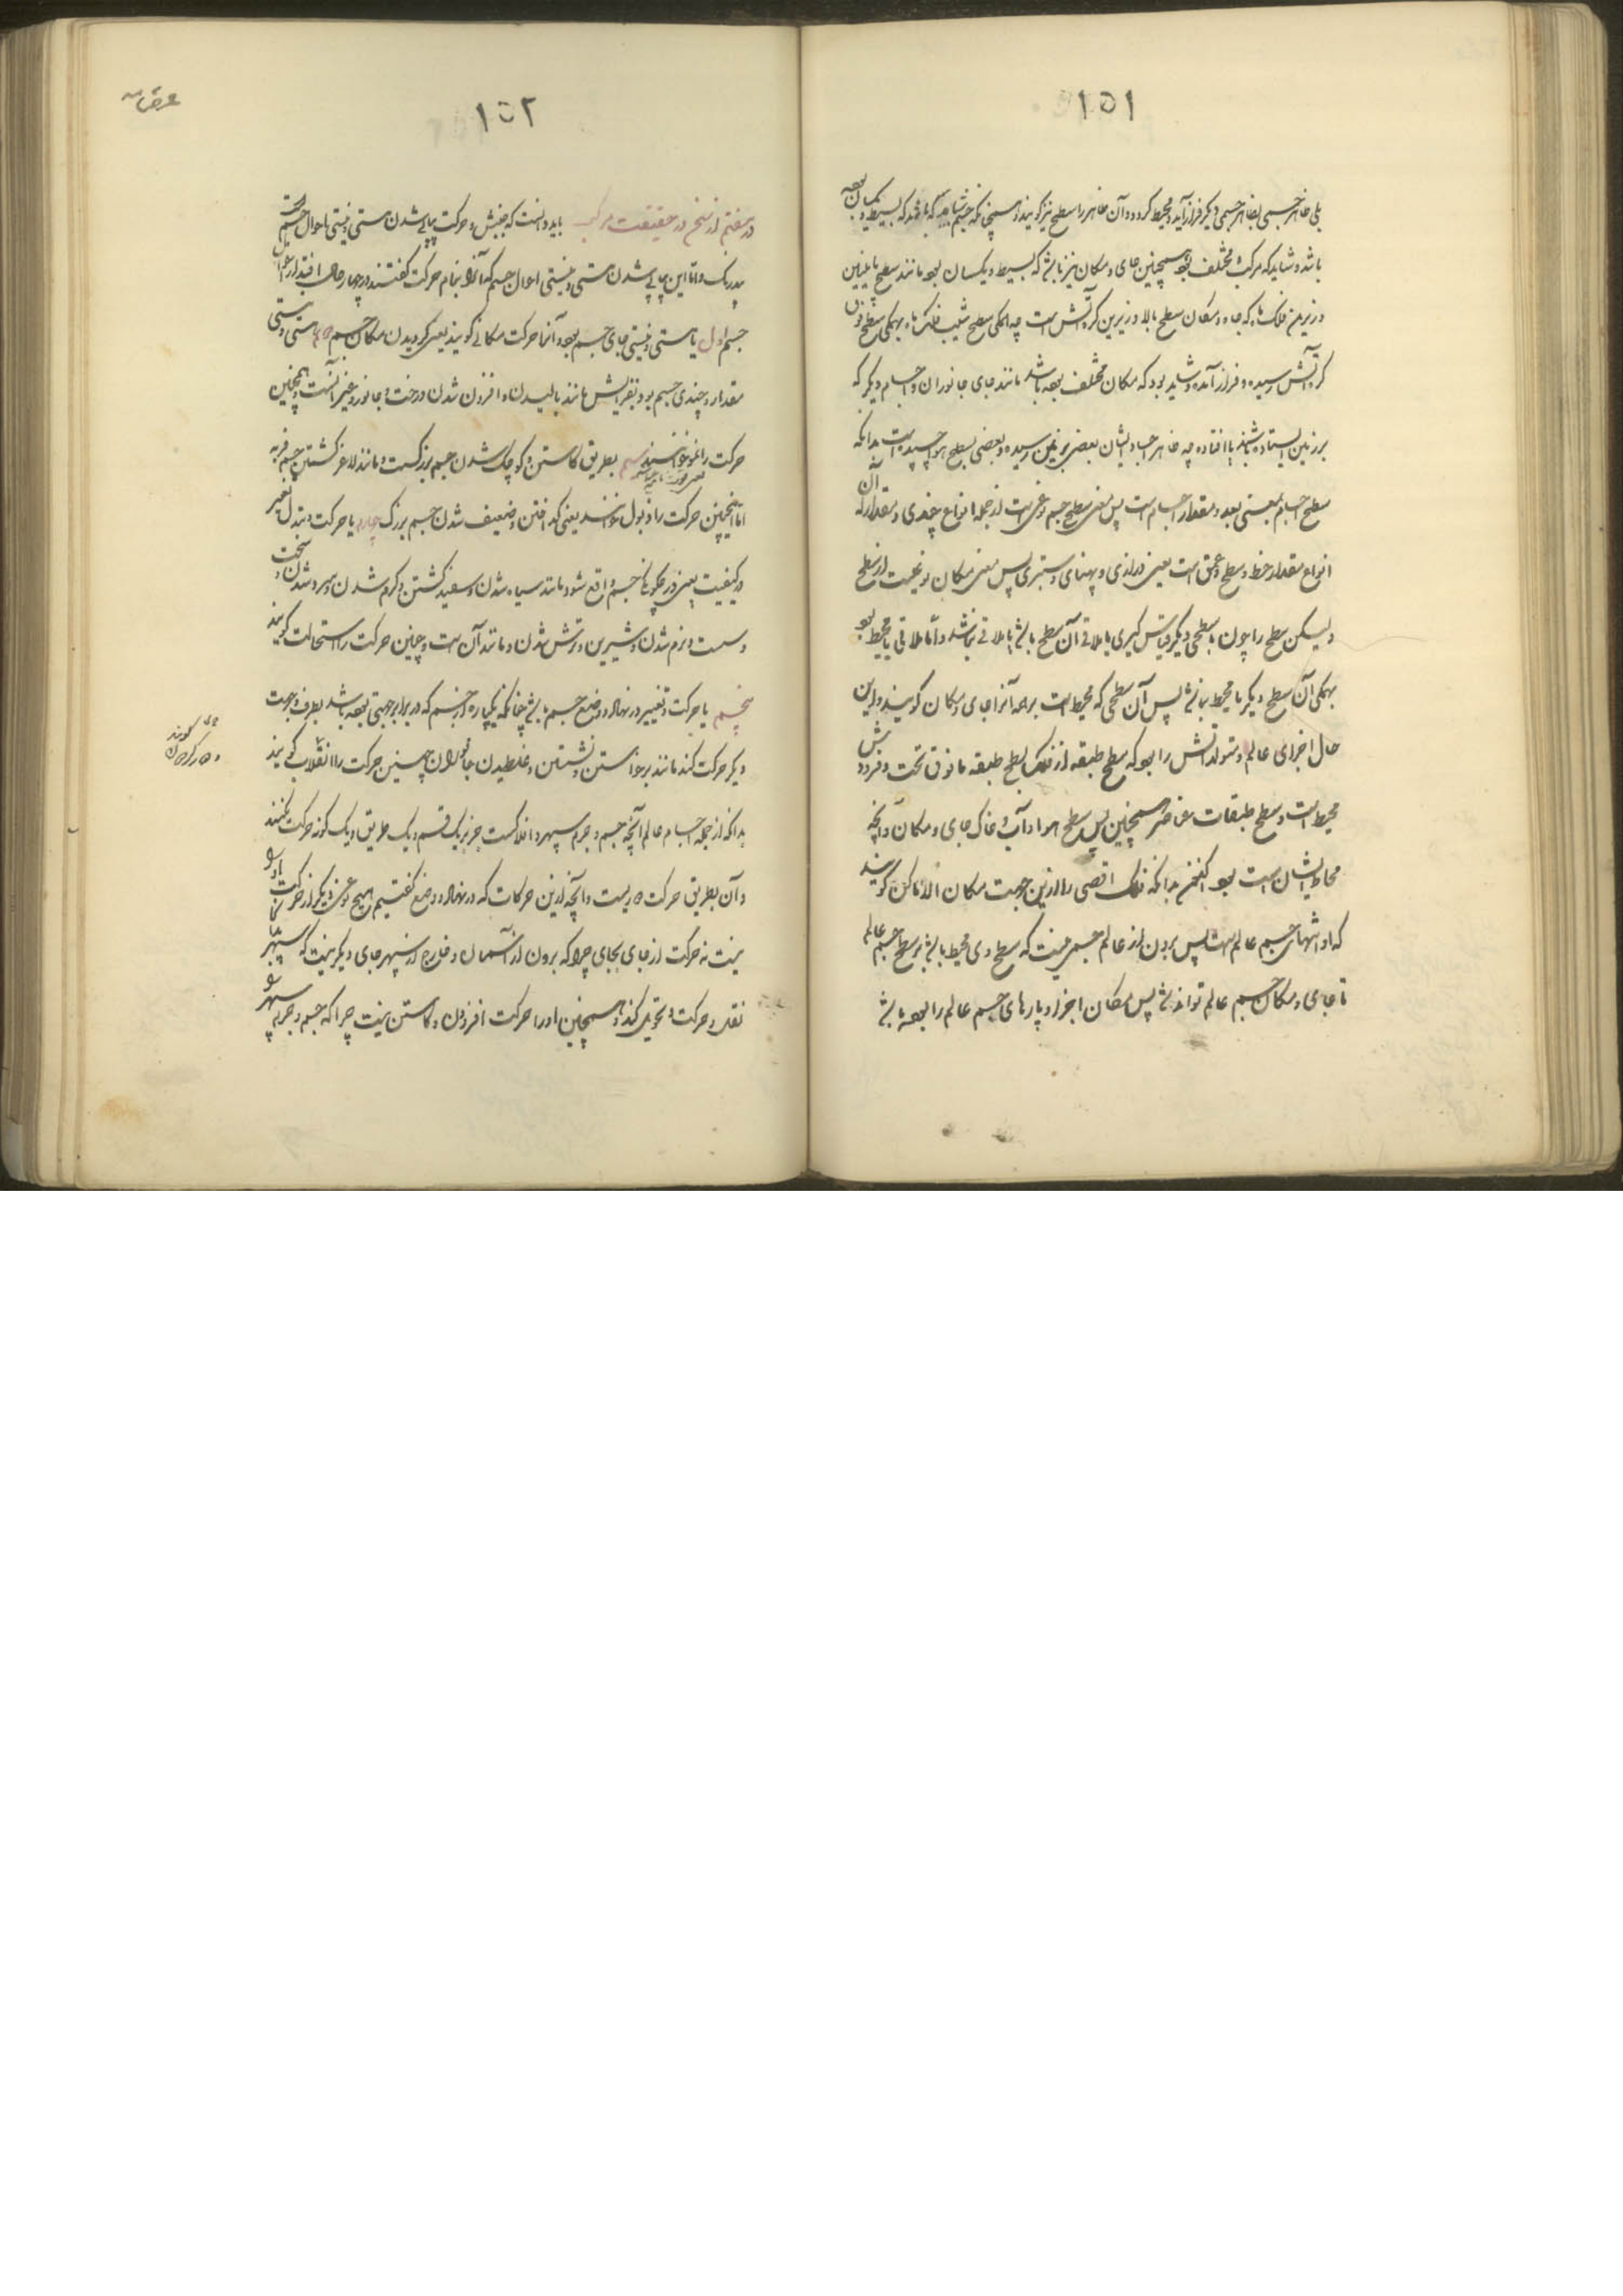 ١٥١
بلی ظاهر جسمی بظاهر جسمی دیگر فراز آید و محیط گردد و آن ظاهر را سطح نیز گویند و همچنانکه جسم شاید که باشد که بسیط و یکسان بود
باشد و شاید که مرکب و مختلف بود همچنین جای و مکان نیز باشد که بسیط و یکسان بود مانند سطح پایینین
و زیرین فلک ماه که جا و مکان سطح بالا و زبرین کره آتش است چه همگی سطح شیب فلک ماه بهمگی سطح فوق
کره آتش رسیده و فراز آمده و شاید بود که مکان مختلف بوده باشد مانند جای جانوران و اجسام دیگر که
بر زمین ایستاده باشند یا افتاده چه ظاهر اجساد ایشان بعضی بزمین رسیده و بعضی بسطح هوا چسپیده است بدانکه
سطح اجسام بمعنی بعد و مقدار اجسام است پس معنی سطح جسم نوعی است از جمله انواع چندی و مقدار که آن
انواع مقدار خط و سطح و عمق است یعنی درازی و پهنای و ستبری پس معنی مکان نوعیست از سطح
ولیکن سطح را چون با سطحی دیگر قیاس گیری یا ملاقی آن سطح باشد یا ملاقی نباشد و اما ملاقی یا محیط بود
بهمگی آن سطح دیگر یا محیط نباشد پس آن سطحی که محیط است بر همه آنرا جای و مکان گویند و این
حال اجزای عالم و متولداتش را بود که سطح طبقه از فلک بسطح طبقه مافوق تحت و فرودش
محیط است و سطح طبقات عناصر همچنین پس سطح هوا و آب و خاک جای و مکان و آنچه
محاط ایشان است بود اکنون بدانکه فلک اقصی را ازین جهت مکان الاماکن گویند
که او انتهای جسم عالم است پس برون از عالم جسمی نیست که سطح وی محیط باشد بر سطح جسم عالم
تا جای و مکان جسم عالم تواند شد پس مکان اجزا و پارهای جسم عالم را بوده باشد
١٥٢
در هفتم از سخن در حقیقت حرکت باید دانست که جنبش و حرکت پیاپی شدن هستی و نیستی احوال جسم است
بیدرنگ و اما این پیاپی شدن هستی و نیستی احوال جسم که آنرا بنام حرکت گفتند در چهار حال افتد از احوال
جسم اول یا هستی و نیستی جای جسم بود و آنرا حرکت مکانی گویند یعنی گردیدن مکان جسم دوم یا هستی و نیستی
مقدار و چندی جسم بود بفزایش مانند بالیدن و افزون شدن درخت و جانور و غیر آنست و همچنین
حرکت را نمو خوانند سیم بطریق کاستن و کوچک شدن جسم بزرگست و مانند لاغر گشتن جسم فربه
اما اینچنین حرکت را ذبول خوانند یعنی گداختن و ضعیف شدن جسم بزرگ چهارم یا حرکت و تبدل و تغییر
در کیفیت یعنی در چگونگی جسم واقع شود مانند سیاه شدن و سفید گشتن و گرم شدن و سرد شدن و سخت
و سست و نرم شدن و شیرین و ترش شدن و مانند آن است و چنین حرکت را استحالت گویند
پنجم یا حرکت و تغییر در نهاد و وضع جسم باشد چنانکه یکپاره از جسم که در برابر جهتی بوده باشد بطرف و جهت
دیگر حرکت کند مانند برخاستن و نشستن و غلطیدن جانوران و چنین حرکت را انقلاب گویند
بدانکه از جمله اجسام عالم آنچه جسم و جرم سپهر و افلاکست جز بریک قسم و یک طریق و یک گونه حرکت نکنند
و آن بطریق حرکت دوریست و آنچه ازین حرکات که در نهاد و وضع گفتیم هیچ نوعی دیگر از حرکت او را
نیست نه حرکت از جای بجای چرا که برون از آسمان و خارج از سپهر جای دیگر نیست که سپهر بدانجا
نقل و حرکت و تحویل کند و همچنین او را حرکت افزودن و کاستن نیست چرا که جسم و جرم سپهر و